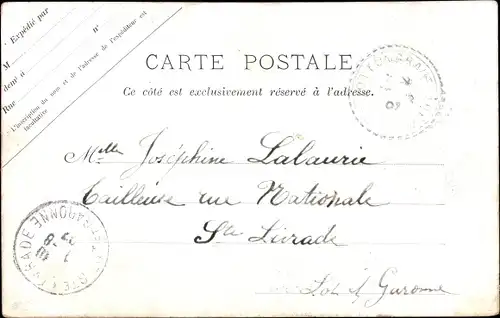 Expédié par
M
demt à n°
Rue
L'inscription du nom et de l'adresse de l'expéditeur est facultative
CARTE POSTALE
Ce côté est exclusivement réservé à l'adresse.
Melle Joséphine Lalaurie
Tailleuse rue Nationale
Ste Livrade
Lot et Garonne